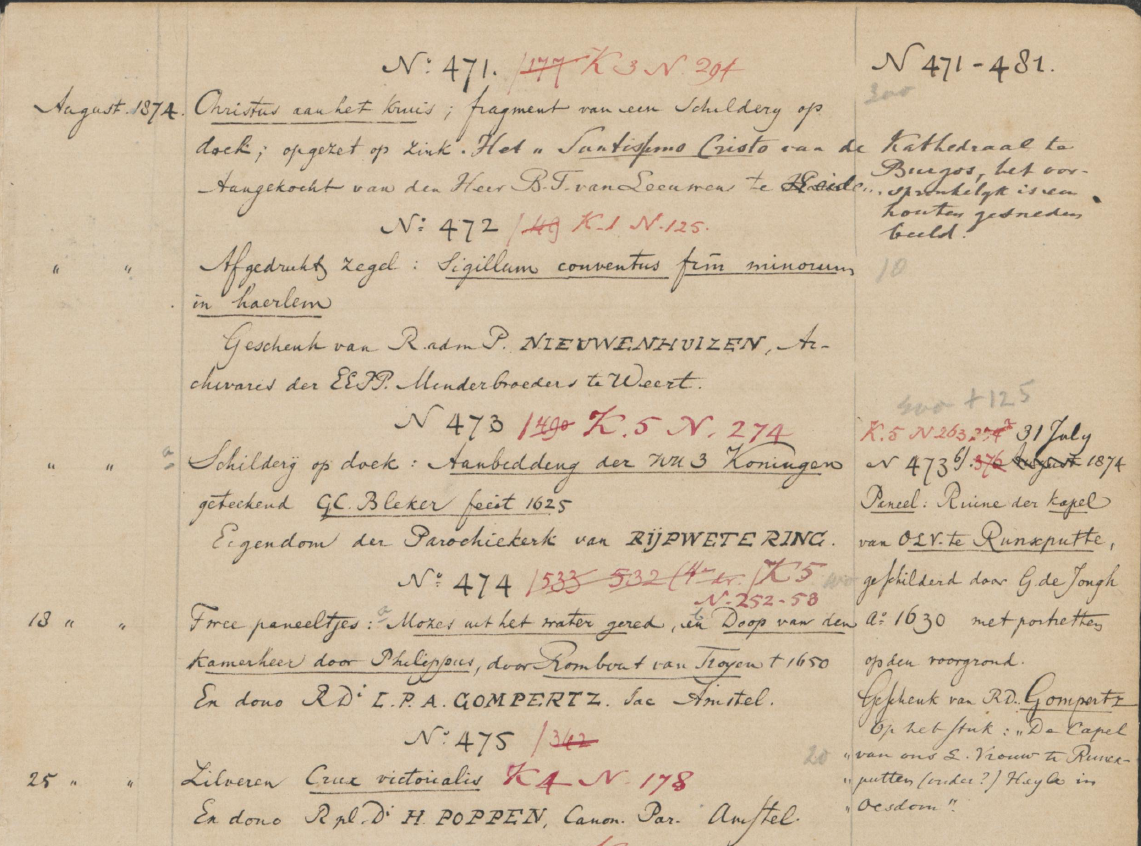 N: 471. /177 K 3 N 294
N 471-481.
300
August. 1874. Christus aan het kruis; fragment van een Schildery op
doek; opgezet op zink. Het „ Santissimo Cristo van de Kathedraal te
Burgos, het oor-
Aangekocht van den Heer B.T. van Leeuwen te
sprinkelyk is een
houten gesneden
beeld.
N: 472 /49 K-1 N-125.
„ „ Afgedrukt zegel: Sigillum conventus frm̄ minorum
10
in haerlem
Geschenk van R. adm P. NIEUWENHUIZEN, Ar-
chivares der EEPP. Minderbroeders te Weert.
N 473 /490 K.5 N. 274
300 + 125
„ „ a Schilderÿ op doek: Aanbidding der HH 3 Koningen
geteekend GC. Bleker fecit 1625
Eigendom der Parochiekerk van RIJPWETERING.
K.5 N 263 274a 31 July
N 473b/. 376 August 1874
Paneel: Ruine der kapel
van O.L.V. te Runxputte,
geschilderd door G. de Jongh
Aº 1630 met portretten
op den voorgrond.
Geschenk van RD. Gompertz
Op het stuk: „De Capel
„van ons L. Vrouw te Runx-
„putten (onder?) Heylo in
„Oesdom".
Nº 474 /533 532 (4e dr.) K5
N-252-53
13 „ „ Twee paneeltjes: a Mozes uit het water gered, en b Doop van den
kamerheer door Philippus, door Rombout van Troyen † 1650
En dono R Di L.P.A. GOMPERTZ. Sac Amstel.
Nº 475 /342
20
25 „ „ Zilveren Crux victorialis K4 N 178
En dono R pl. Di H. POPPEN, Canon. Par. Amstel.